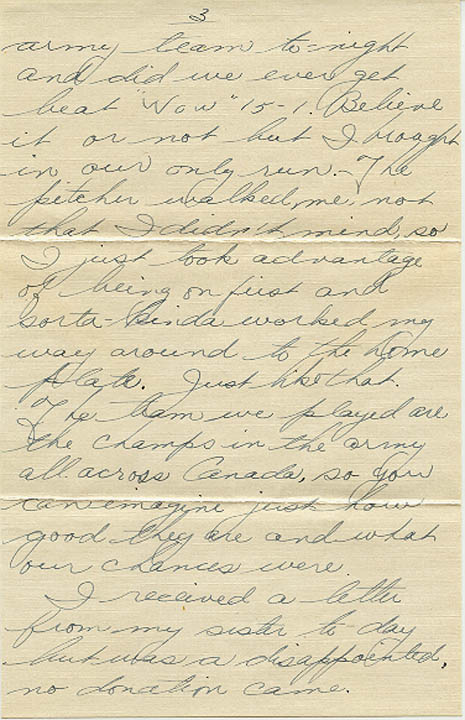 3
army team to-night
and did we ever get
beat "Wow" 15-1. Believe
it or not but I brought
in our only run. - The
pitcher walked me, not
that I didn't mind, so
I just took advantage
of being on first and
sorta-kinda worked my
way around to the home
plate. Just like that.
The team we played are
the champs in the army
all across Canada, so you
can imagine just how
good they are and what
our chances were.
I received a letter
from my sister to-day
but was a disappointed,
no donation came.